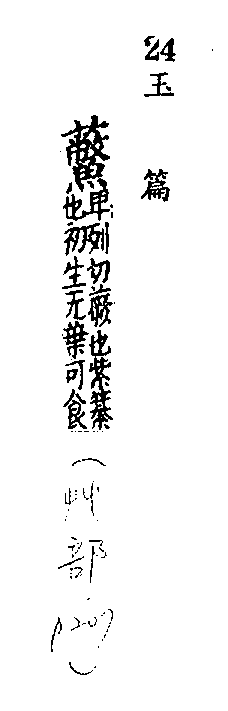 24
玉篇
卑列切蕨也紫藄
也初生无葉可食
(艸部